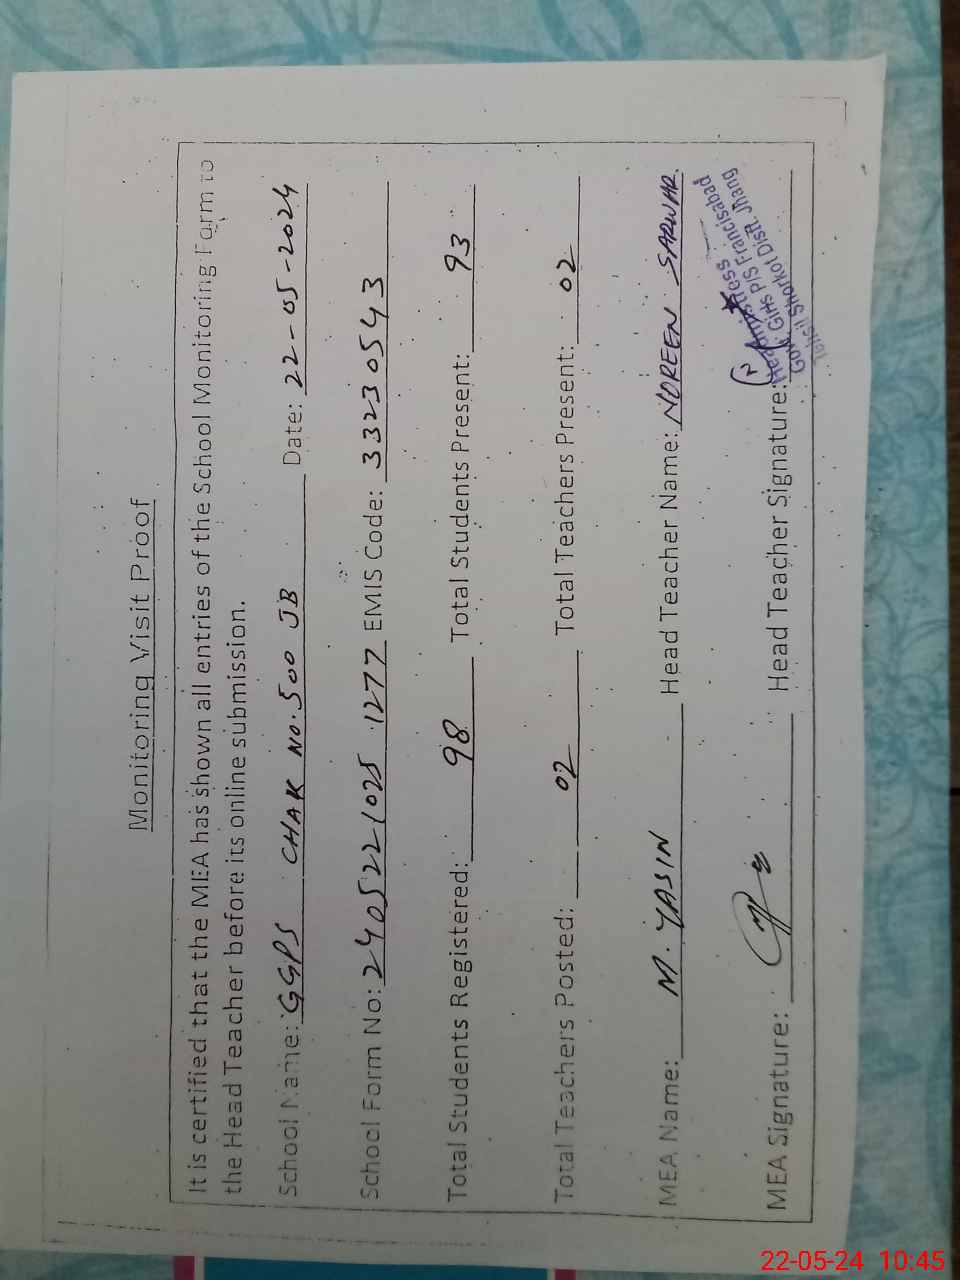 Monitoring Visit Proof
It is certified that the MEA has shown all entries of the School Monitoring Form to
the Head Teacher before its online submission.
School Name: GGPS CHAK NO. 500 JB Date: 22-05-2024
School Form No: 240522 1025 1277 EMIS Code: 33230543
Total Students Registered: 98 Total Students Present: 93
Total Teachers Posted: 02 Total Teachers Present: 02
MEA Name: M. YASIN Head Teacher Name: NOREEN SARWAR
MEA Signature: Head Teacher Signature:
Headmistress
Govt. Girls P/S Francisabad
Tehsil Shorkot Distt. Jhang
22-05-24 10:45